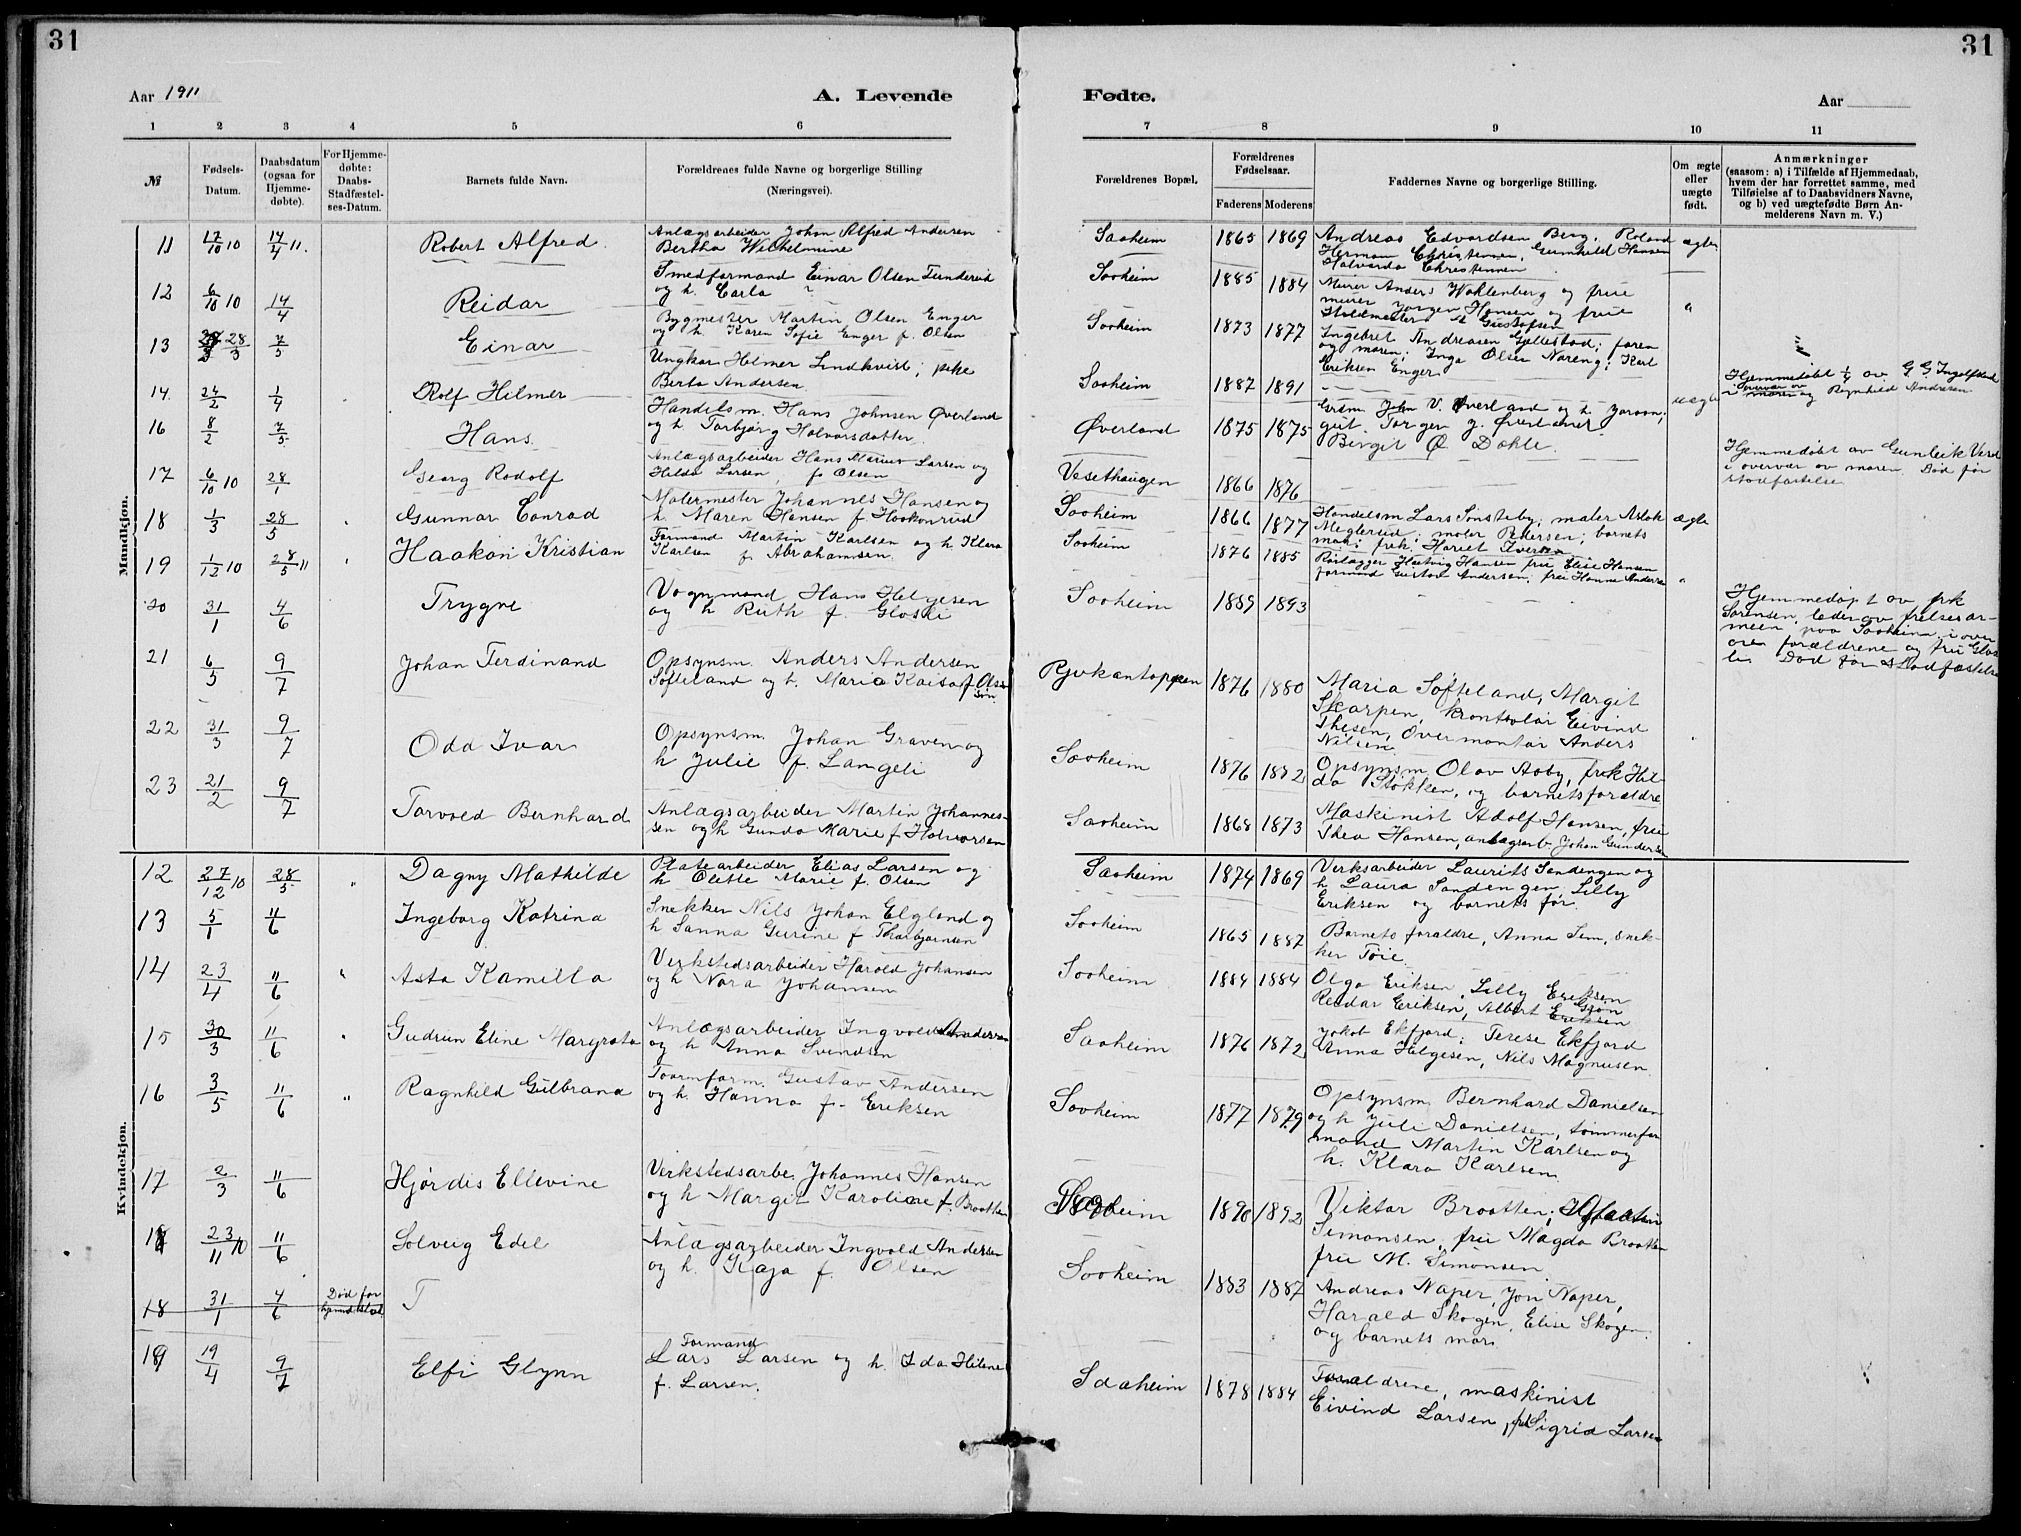 31
31
Aar 1911
A. Levende
Fødte.
Aar
1 2 3 4 5 6
7 8 9 10 11
№
Fødsels-Datum.
Daabsdatum (ogsaa for Hjemme-døbte).
For Hjemme-døbte: Daabs-Stadfæstel-ses-Datum.
Barnets fulde Navn.
Forældrenes fulde Navne og borgerlige Stilling
(Næringsvei).
Forældrenes Bopæl.
Forældrenes Fødselsaar.
Faderens Moderens
Faddernes Navne og borgerlige Stilling.
Om ægte eller uægte født.
Anmærkninger
(saasom: a) i Tilfælde af Hjemmedaab,
hvem der har forrettet samme, med
Tilføielse af to Daabsvidners Navne,
og b) ved uægtefødte Børn An-
melderens Navn m. V.)
Mandkjøn.
11 17/10 10 17/4 11. Robert Alfred
Anlægsarbeider Johan Alfred Andersen
Bertha Wilhelmine
Saaheim 1865 1869
Andreas Edvardsen Berg, Roland
Herman Christensen, Gunhild Hansen
Halvarda Christensen
ægte
12 6/10 10 14/4 Reidar
Smedformand Einar Olsen Tunderud
og h. Carla ?
Saaheim 1885 1884
Murer Anders Wahlenberg og frue
murer Jørgen Hansen og frue
Gustafsen
"
13 28/3 7/5 Einar
Bygmester Martin Olsen Enger
og h. Karen Sofie Enger f. Olsen
Saaheim 1873 1877
Ingebret Andreasen Gullestad; faren
og moren; Inga Olsen Nareng; Karl
Eriksen Enger
14. 24/2 1/4 Rolf Hilmer
Ungkar Hilmer Lindkvist; pike
Berta Andersen
Saaheim 1887 1891
uægte
Hjemmedøbt 1/4 av G. G. Ingolfsland
i overvær av moren og Regnhild Andresen
16 8/2 7/5 Hans
Handelsm. Hans Johnsen Øverland
og h. Torbjørg Halvorsdatter
Øverland 1875 1875
John V. Øverland og h. Joraan;
gut. Torgen J. Øverland
Bergit Ø Dahle
17 6/10 10 28/1 Georg Rodolf
Anlægsarbeider Hans Marius Larsen og
Hilda Larsen, f. Olsen
Vesethaugen 1866 1876
Hjemmedøbt av Gunleik Verd
i overvær av moren. Død før
stadfæstelse
18 1/3 28/5 Gunnar Conrad
Malermester Johannes Hansen og
h. Maren Hansen f. Haakonrud
Saaheim 1866 1877
Handelsm Lars Sønsteby; maler Aslak
Meglerud; maler Pedersen; barnets
mor; frøk. Hariet Iversen
ægte
19 1/12 10 28/5 11 Haakon Kristian
Formand Martin Karlsen og h. Klara
Karlsen f Abrahamsen
Saaheim 1876 1885
Rørlægger Hartvig Hansen frue Elise Hansen
formand Gustav Andersen, frue Hanna Andersen
"
20 31/1 4/6 Trygve
Vognmand Hans Helgesen
og h Ruth f. Gloski
Saaheim 1889 1893
Hjemmedøpt av frk
Sørensen, leder av frelsesar-
meen paa Saaheim, i over
vær forældrene og frue Glos
ki Død før stadfæstelse
21 6/5 9/7 Johan Ferdinand
Opsynsm. Anders Andersen
Søfteland og h. Maria Kaisa f. Ols
søn
Rjukantoppen 1876 1880
Maria Søfteland, Margit
Skarpen, krontrolør Eivind
Thesen, Overmontør Anders
Nilsen
22 31/3 9/7 Odd Ivar
Opsynsm. Johan Graven og
h Julie f. Langeli
Saaheim 1876 1882
Opsynsm Olav Aaby, frøk Hil-
da Stokken, og barnets forældre
23 21/2 9/7 Torvald Bernhard
Anlægsarbeider Martin Johannes-
sen og h Gunda Marie f Halvorsen
Saaheim 1868 1873
Maskinist Adolf Hansen, frue
Thea Hansen, anlægsarb Johan Gundersen
Kvindekjøn.
12 27/12 10 28/5 " Dagny Mathilde
Platearbeider Elias Larsen og
h Olette Marie f. Olsen
Saaheim 1874 1869
Verksarbeider Laurits Sandengen og
h Laura Sandengen, Lilly
Eriksen og barnets far
13 5/1 11/6 Ingeborg Katrina
Snekker Nils Johan Elgland og
h Sanna Gurine f Tharbjørnsen
Saaheim 1865 1887
Barnets forældre, Anna Sem, snek-
ker Tøie.
14 23/4 11/6 " Asta Kamilla
Verkstedsarbeider Harald Johansen
og h Nora Johansen
Saaheim 1884 1884
Olga Eriksen, Lilly Eriksen
Reidar Eriksen, Albert Grøn
Eriksen
15 30/3 11/6 " Gudrun Eline Margrata
Anlægsarbeider Ingvald Andersen
og h Anna Svendsen
Saaheim 1876 1872
Jakob Ekfjord; Terese Ekfjord
Anna Helgesen, Nils Magnusen
16 3/5 11/6 " Ragnhild Gulbrana
Taarnform. Gustav Andersen
og h. Hanna f. Eriksen
Saaheim 1877 1879
Opsynsm Bernhard Danielsen
og h Juli Danielsen, tømmerfor
mand Martin Karlsen og
h. Klara Karlsen
17 2/3 11/6 Hjørdis Ellevine
Verkstedsarbe. Johannes Hansen
og h Margit Karoline f. Braatten
Saaheim 1890 1892
Viktor Braatten,
Simonsen, frue Magda Braatten
frue M. Simonsen
18 23/11 10 11/6 Solveig Edel
Anlægsarbeider Ingvald Andersen
og h. Kaja f. Olsen
Saaheim 1883 1887
Andreas Naper, Jon Naper,
Harald Skogen, Elise Skogen
og barnets mor
18 31/1 4/6 Død før T
19 19/4 9/7 Elfi Glynn
Formand
Lars Larsen og h. Ida Hilene
f. Larsen.
Saaheim 1878 1884
Forældrene, maskinist
Eivind Larsen, frk Sigrid Larsen